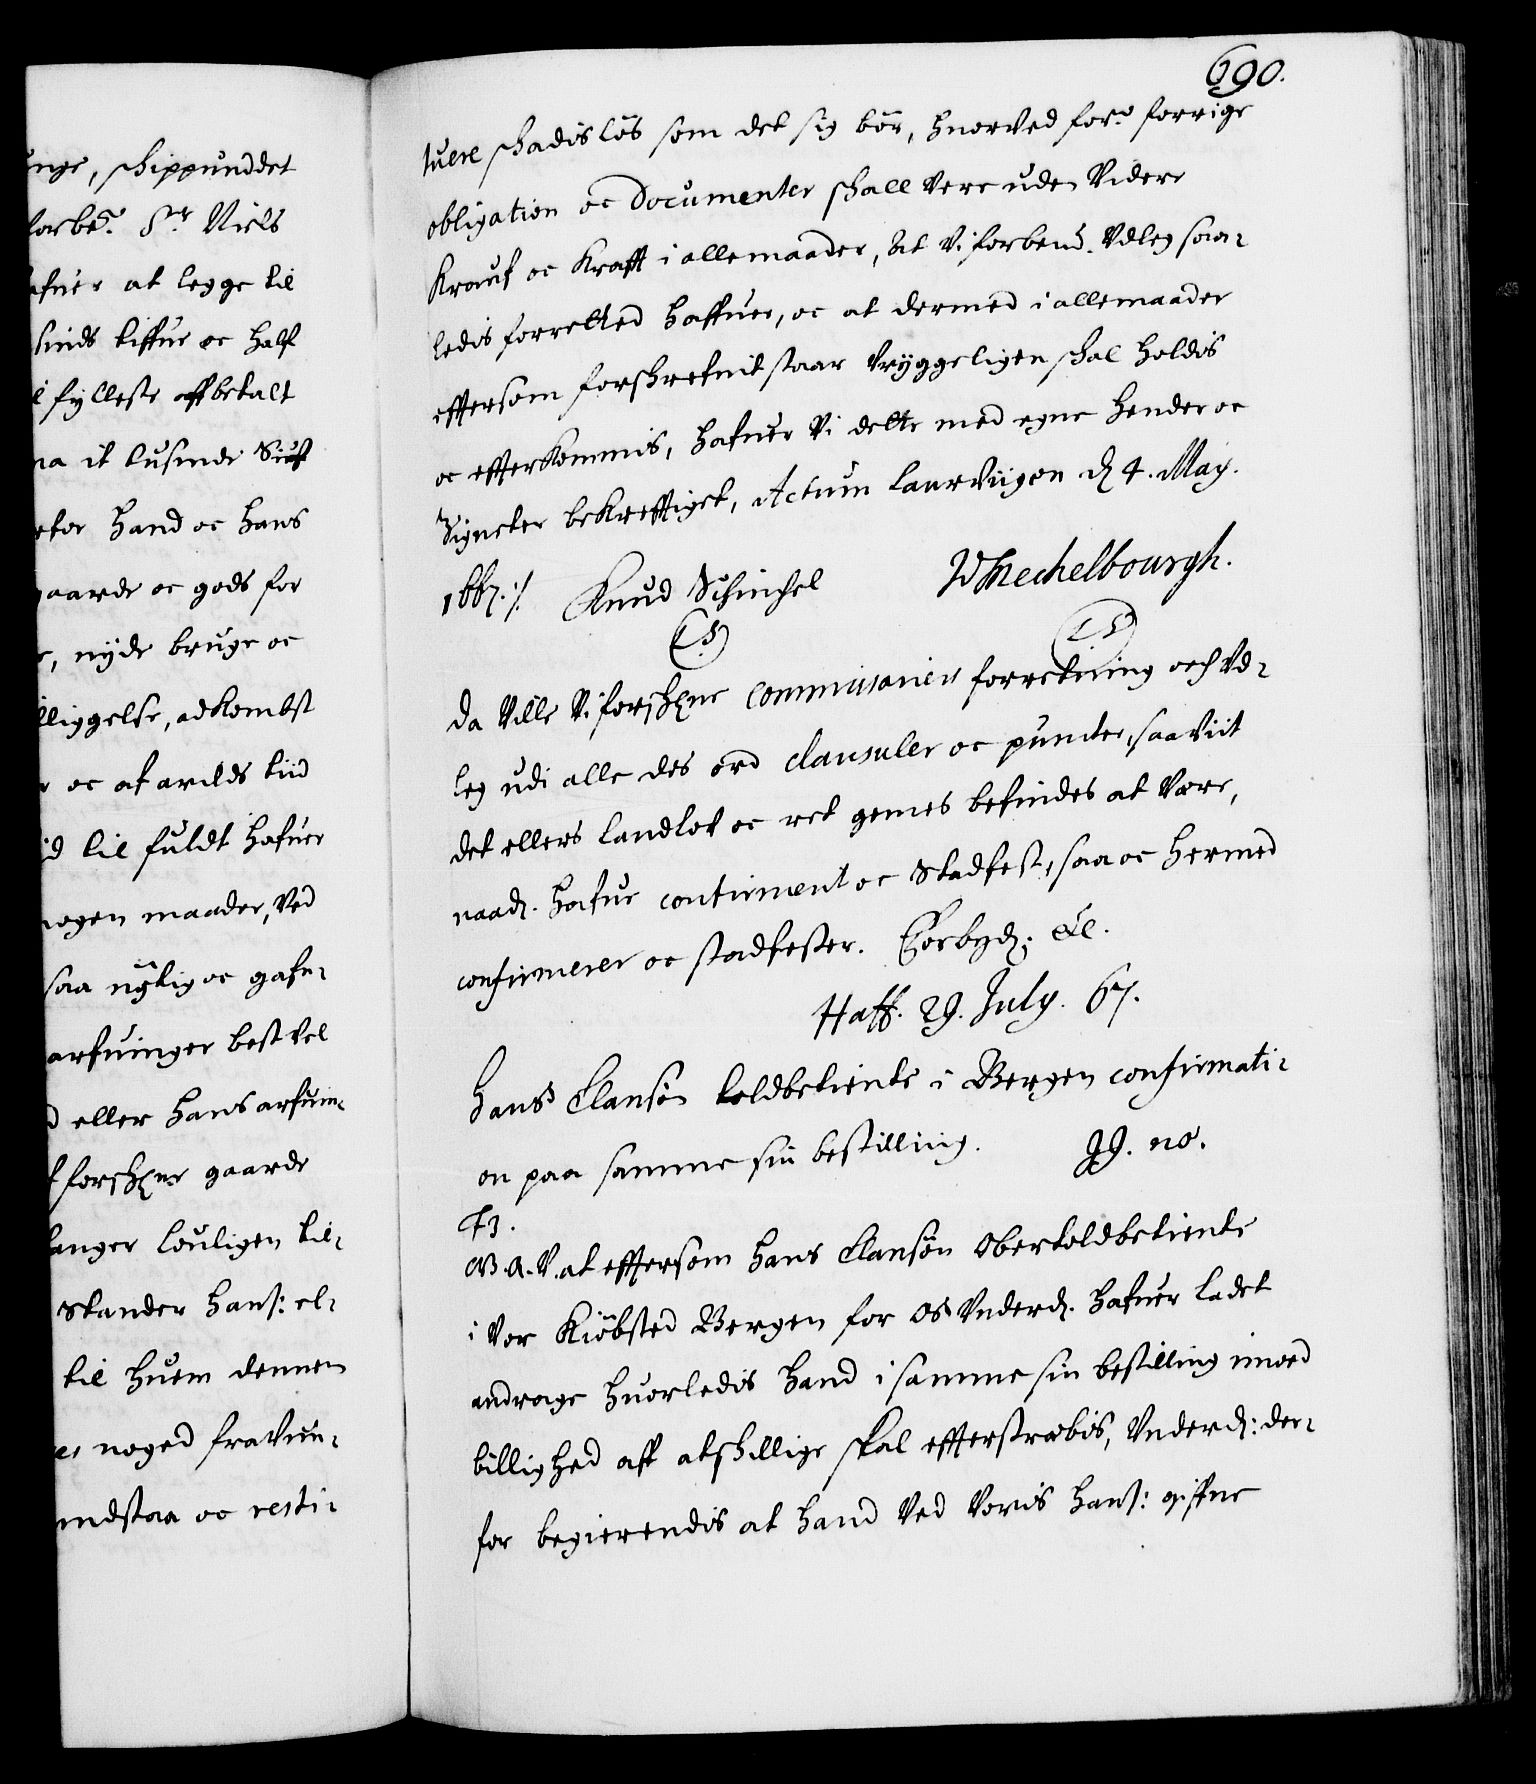 unge, schippunddet
forbe.te Sr. Niels
afuer at legge til
sinds tiffue oc half
l fylleste affbetalt
na it tusinde
etor hand oc hans
gaarde oc gods for
e, nyde bruge oc
lliggelse, adkombst
r oc af arilds tiid
id til fuldt hafuer
nogen maader, Ved
saa nÿtig oc gafn-
arfuinger best Vel
d eller hans arfuin-
f forschne gaarde
langer louligen til-
stander hans: el-
til huem dennem
er noged fraVun-
indstaa oc resti-
690.
tuere schadisløs som det sig bør, huorVed for.e forrige
obligation oc Documenter schall Vere uden Videre
Krauf oc Krafft i allemaader, At Vi forbend. Vdleg saa-
ledis forretted haffuer, oc at dermed i allemaader
effersom forschrefuit staar Vryggeligen schal holdis
oc efferkommis, hafuer Vi dette med egne hender oc
Signeter bekrefftiget, Actum Laurviigen d. 4. May.
1667 ./. Knud Schinchel WMechelbourgh.
(L.S.) (L.S.)
Da Ville Vi forschne Commissariers forretning och Vd-
leg udi alle des ord clausuler oc puncter, saaViit
det ellers landlof oc ret gemes befindes at Være,
naad. hafue confirmert oc stadfest, saa oc hermed
confirmerer oc stadfester. Forbyd: &c.
Haff. 29. July. 67.
Hans Clausøn toldbetiente i Bergen confirmati-
on paa samme sin bestilling. 99. no.
F3.
G.A.V. at effersom Hans Clausøn Obertoldbetiente
i Vor Kiøbsted Bergen for Os Vnderd. hafuer ladet
andrage huorledis hand i samme sin bestilling imod
billighed aff atschillige skal efferstræbis, Vnderd: der-
for begierendis at hand Ved Voris hans: giffne